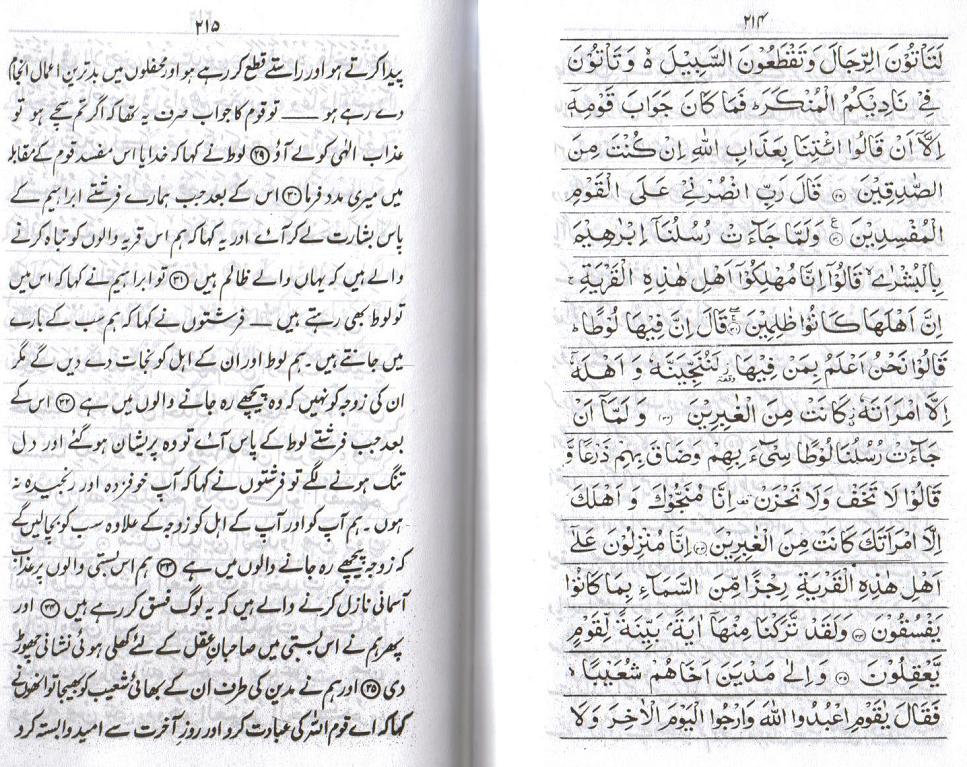 ۲۱۴
لَتَاْتُوْنَ الرِّجَالَ وَتَقْطَعُوْنَ السَّبِيْلَ ەۙ وَ تَاْتُوْنَ
فِيْ نَادِيْكُمُ الْمُنْكَرَ ؕ فَمَا كَانَ جَوَابَ قَوْمِهٖۤ
اِلَّاۤ اَنْ قَالُوا ائْتِنَا بِعَذَابِ اللّٰهِ اِنْ كُنْتَ مِنَ
الصّٰدِقِيْنَ ﴿۲۹﴾ قَالَ رَبِّ انْصُرْنِيْ عَلَى الْقَوْمِ
الْمُفْسِدِيْنَ ﴿۳۰﴾ وَلَمَّا جَآءَتْ رُسُلُنَاۤ اِبْرٰهِيْمَ
بِالْبُشْرٰى ۙ قَالُوْۤا اِنَّا مُهْلِكُوْۤا اَهْلِ هٰذِهِ الْقَرْيَةِ ۚ
اِنَّ اَهْلَهَا كَانُوْا ظٰلِمِيْنَ ﴿۳۱﴾ قَالَ اِنَّ فِيْهَا لُوْطًا ؕ
قَالُوْا نَحْنُ اَعْلَمُ بِمَنْ فِيْهَا ؗ لَنُنَجِّيَنَّهٗ وَ اَهْلَهٗۤ
اِلَّا امْرَاَتَهٗ ؗ كَانَتْ مِنَ الْغٰبِرِيْنَ ﴿۳۲﴾ وَ لَمَّاۤ اَنْ
جَآءَتْ رُسُلُنَا لُوْطًا سِيْٓءَ بِهِمْ وَضَاقَ بِهِمْ ذَرْعًا وَّ
قَالُوْا لَا تَخَفْ وَلَا تَحْزَنْ اِنَّا مُنَجُّوْكَ وَ اَهْلَكَ
اِلَّا امْرَاَتَكَ كَانَتْ مِنَ الْغٰبِرِيْنَ ﴿۳۳﴾ اِنَّا مُنْزِلُوْنَ عَلٰۤى
اَهْلِ هٰذِهِ الْقَرْيَةِ رِجْزًا مِّنَ السَّمَآءِ بِمَا كَانُوْا
يَفْسُقُوْنَ ﴿۳۴﴾ وَلَقَدْ تَّرَكْنَا مِنْهَاۤ اٰيَةًۢ بَيِّنَةً لِّقَوْمٍ
يَّعْقِلُوْنَ ﴿۳۵﴾ وَ اِلٰى مَدْيَنَ اَخَاهُمْ شُعَيْبًا ۙ
فَقَالَ يٰقَوْمِ اعْبُدُوا اللّٰهَ وَارْجُوا الْيَوْمَ الْاٰخِرَ وَ لَا
۲۱۵
پیدا کرتے ہو اور راستے قطع کر رہے ہو اور محفلوں میں بدترین اعمال انجام
دے رہے ہو ـــــ تو قوم کا جواب صرف یہ تھا کہ اگر تم سچے ہو تو
عذاب الٰہی کو لے آؤ ﴿۲۹﴾ لوط نے کہا کہ خدایا اس مفسد قوم کے مقابلہ
میں میری مدد فرما ﴿۳۰﴾ اس کے بعد جب ہمارے فرشتے ابراہیم کے
پاس بشارت لے کر آئے اور یہ کہا کہ ہم اس قریہ والوں کو تباہ کرنے
والے ہیں کہ یہاں والے ظالم ہیں ﴿۳۱﴾ تو ابراہیم نے کہا کہ اس میں
تو لوط بھی رہتے ہیں ـــ فرشتوں نے کہا کہ ہم سب کے بارے
میں جانتے ہیں۔ ہم لوط اور ان کے اہل کو نجات دے دیں گے مگر
ان کی زوجہ کو نہیں کہ وہ پیچھے رہ جانے والوں میں ہے ﴿۳۲﴾ اس کے
بعد جب فرشتے لوط کے پاس آئے تو وہ پریشان ہو گئے اور دل
تنگ ہونے لگے تو فرشتوں نے کہا کہ آپ خوفزدہ اور رنجیدہ نہ
ہوں۔ ہم آپ کو اور آپ کے اہل کو زوجہ کے علاوہ سب کو بچالیں گے
کہ زوجہ پیچھے رہ جانے والوں میں ہے ﴿۳۳﴾ ہم اس بستی والوں پر عذاب
آسمانی نازل کرنے والے ہیں کہ یہ لوگ فسق کر رہے ہیں ﴿۳۴﴾ اور
پھر ہم نے اس بستی میں صاحبانِ عقل کے لئے کھلی ہوئی نشانی چھوڑ
دی ﴿۳۵﴾ اور ہم نے مدین کی طرف ان کے بھائی شعیب کو بھیجا تو انھوں نے
کہا کہ اے قوم اللہ کی عبادت کرو اور روز آخرت سے امید وابستہ کرو